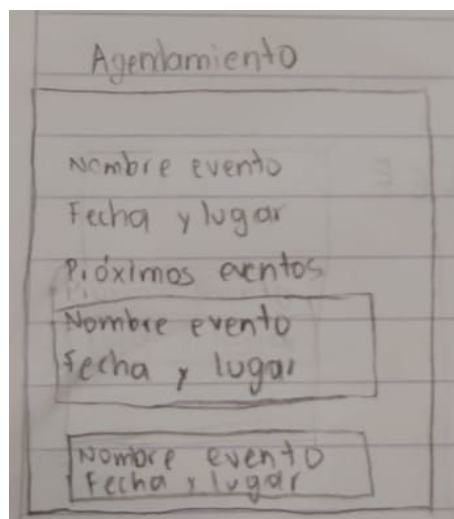 Agendamiento
Nombre evento
Fecha y lugar
Próximos eventos
Nombre evento
Fecha y lugar
Nombre evento
Fecha y lugar